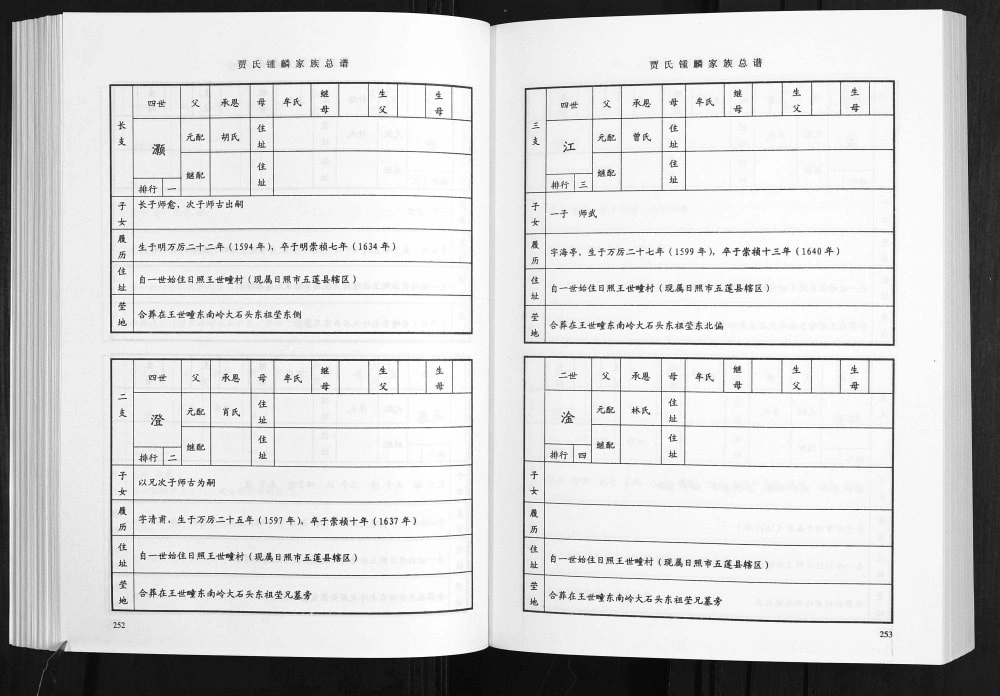 贾氏锺麟家族总谱
长支 四世 父 承恩 母 牟氏 继母 生父 生母
灏 元配 胡氏 住址
继配 住址
排行 一
子女 长子师愈，次子师古出嗣
履历 生于明万历二十二年（1594年），卒于明崇祯七年（1634年）
住址 自一世始住日照王世疃村（现属日照市五莲县辖区）
茔地 合葬在王世疃东南岭大石头东祖茔东侧
二支 四世 父 承恩 母 牟氏 继母 生父 生母
澄 元配 肖氏 住址
继配 住址
排行 二
子女 以兄次子师古为嗣
履历 字清甫，生于万历二十五年（1597年），卒于崇祯十年（1637年）
住址 自一世始住日照王世疃村（现属日照市五莲县辖区）
茔地 合葬在王世疃东南岭大石头东祖茔兄墓旁
252
贾氏锺麟家族总谱
三支 四世 父 承恩 母 牟氏 继母 生父 生母
江 元配 曾氏 住址
继配 住址
排行 三
子女 一子 师武
履历 字海亭，生于万历二十七年（1599年），卒于崇祯十三年（1640年）
住址 自一世始住日照王世疃村（现属日照市五莲县辖区）
茔地 合葬在王世疃东南岭大石头东祖茔东北偏
二世 父 承恩 母 牟氏 继母 生父 生母
淦 元配 林氏 住址
继配 住址
排行 四
子女
履历
住址 自一世始住日照王世疃村（现属日照市五莲县辖区）
茔地 合葬在王世疃东南岭大石头东祖茔兄墓旁
253